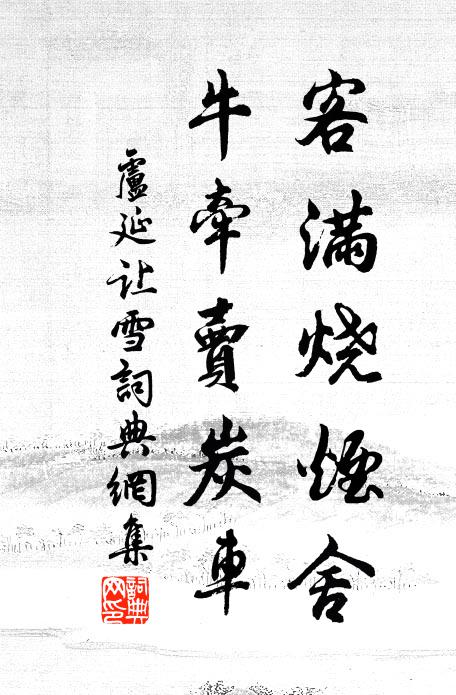 客满烧煙舍
牛牵賣炭車
盧延让雪詞典網集
詞典网印